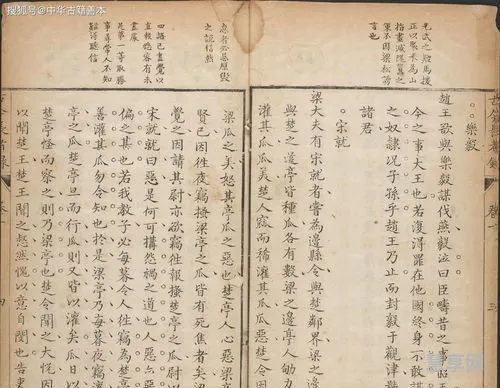 搜狐号@中华古籍善本
光武之貶馬援
正以聚米為山
指畫滅隗囂之
軍不因梁松謗
言也
樂毅
趙王欲與樂毅謀伐燕毅泣曰臣疇昔之事昭王
今之事大王也若復得罪在他國終身不敢謀趙
之奴隸况子孫乎趙王乃止而封毅于觀津
諸君
宋就
梁大夫有宋就者嘗為邊縣令與楚鄰界梁之邊
與楚之邊亭皆種瓜各有數梁之邊亭人劬力
灌其瓜瓜美楚人窳而稀灌其瓜瓜惡楚令因
四語已盡覺以
直報怨容有未
盡處
是第一等取勝
事尋常人不知
難得聽信
梁瓜之美怒其亭瓜之惡也楚亭人心惡梁亭
賢己因往夜竊搔梁亭之瓜皆有死焦者矣梁
覺之因請其尉亦欲竊往報搔楚亭之瓜尉以
宋就就曰惡是何可搆怨禍之道也人惡亦惡
偏之甚也若我教子必每暮令人往竊為楚亭
善灌其瓜勿令知也於是梁亭乃每暮夜竊灌
亭之瓜楚亭旦而行瓜則又皆以灌矣瓜日以
楚亭怪而察之則乃梁亭也楚令聞之大悦因
以聞楚王楚王聞之惄然愧以意自閔也告吏